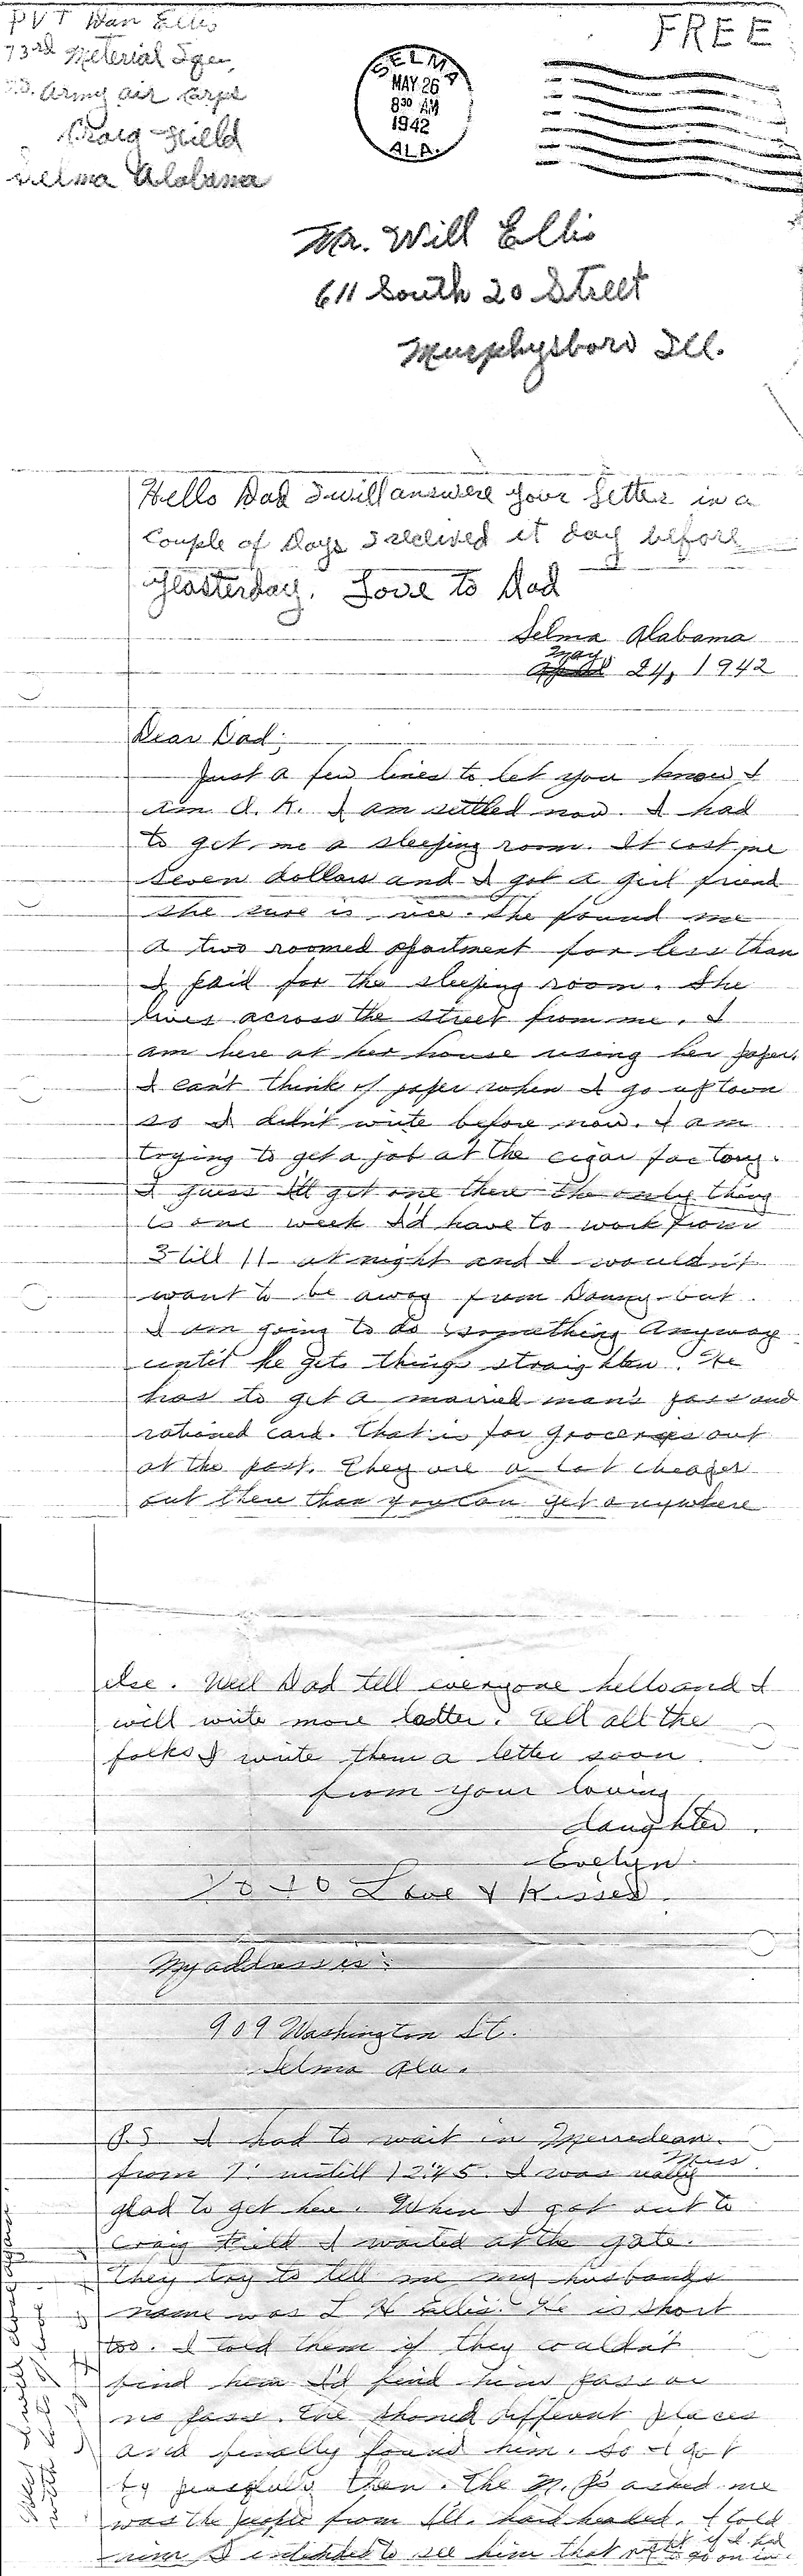 PVT Dan Ellis
73rd Material Sqn,
Army air Corps
Craig Field
Selma Alabama
FREE
SELMA
MAY 26
830 AM
1942
ALA.
Mr. Will Ellis
611 South 20 Street
Murphysboro Ill.
Hello Dad I will answere your letter in a
Couple of Days I received it day before
yeasterday. Love to Dad
Selma Alabama
May
April 24, 1942
Dear Dad;
Just a few lines to let you know I
am O. K. I am settled now. I had
to get me a sleeping room. It cost me
seven dollars and I got a girl friend
she sure is nice. She found me
a two roomed apartment for less than
I paid for the sleeping room. She
lives across the street from me. I
am here at her house using her paper.
I can't think of paper when I go up town
so I didn't write before now. I am
trying to get a job at the cigar factory.
I guess I'll get one there the only thing
is one week I'd have to work from
3 till 11 at night and I wouldn't
want to be away from Danny but
I am going to do something anyway
until he gets things straighten. He
has to get a married man's pass and
rationed card. That is for groceries out
at the post. They are a lot cheaper
out there than you can get anywhere
else. Well Dad tell everyone hello and I
will write more latter. Tell all the
folks I write them a letter soon.
from your loving
daughter.
Evelyn.
Love & Kisses.
My address is:
909 Washington St.
Selma Ala.
P.S I had to wait in Merredean
Miss.
from 7: untill 12:45. I was really
glad to get here. When I got out to
Craig Field I waited at the gate.
They try to tell me my husbands
name was L H Ellis. He is short
too. I told them if they couldn't
find him I'd find him pass or
no pass. We phoned different places
and finally found him. So I got
by peacefully then. The M. P's asked me
was the people from Ill. hard headed. I told
him I intended to see him that night if I had
to go on in.
Well I will close again
with lots of love